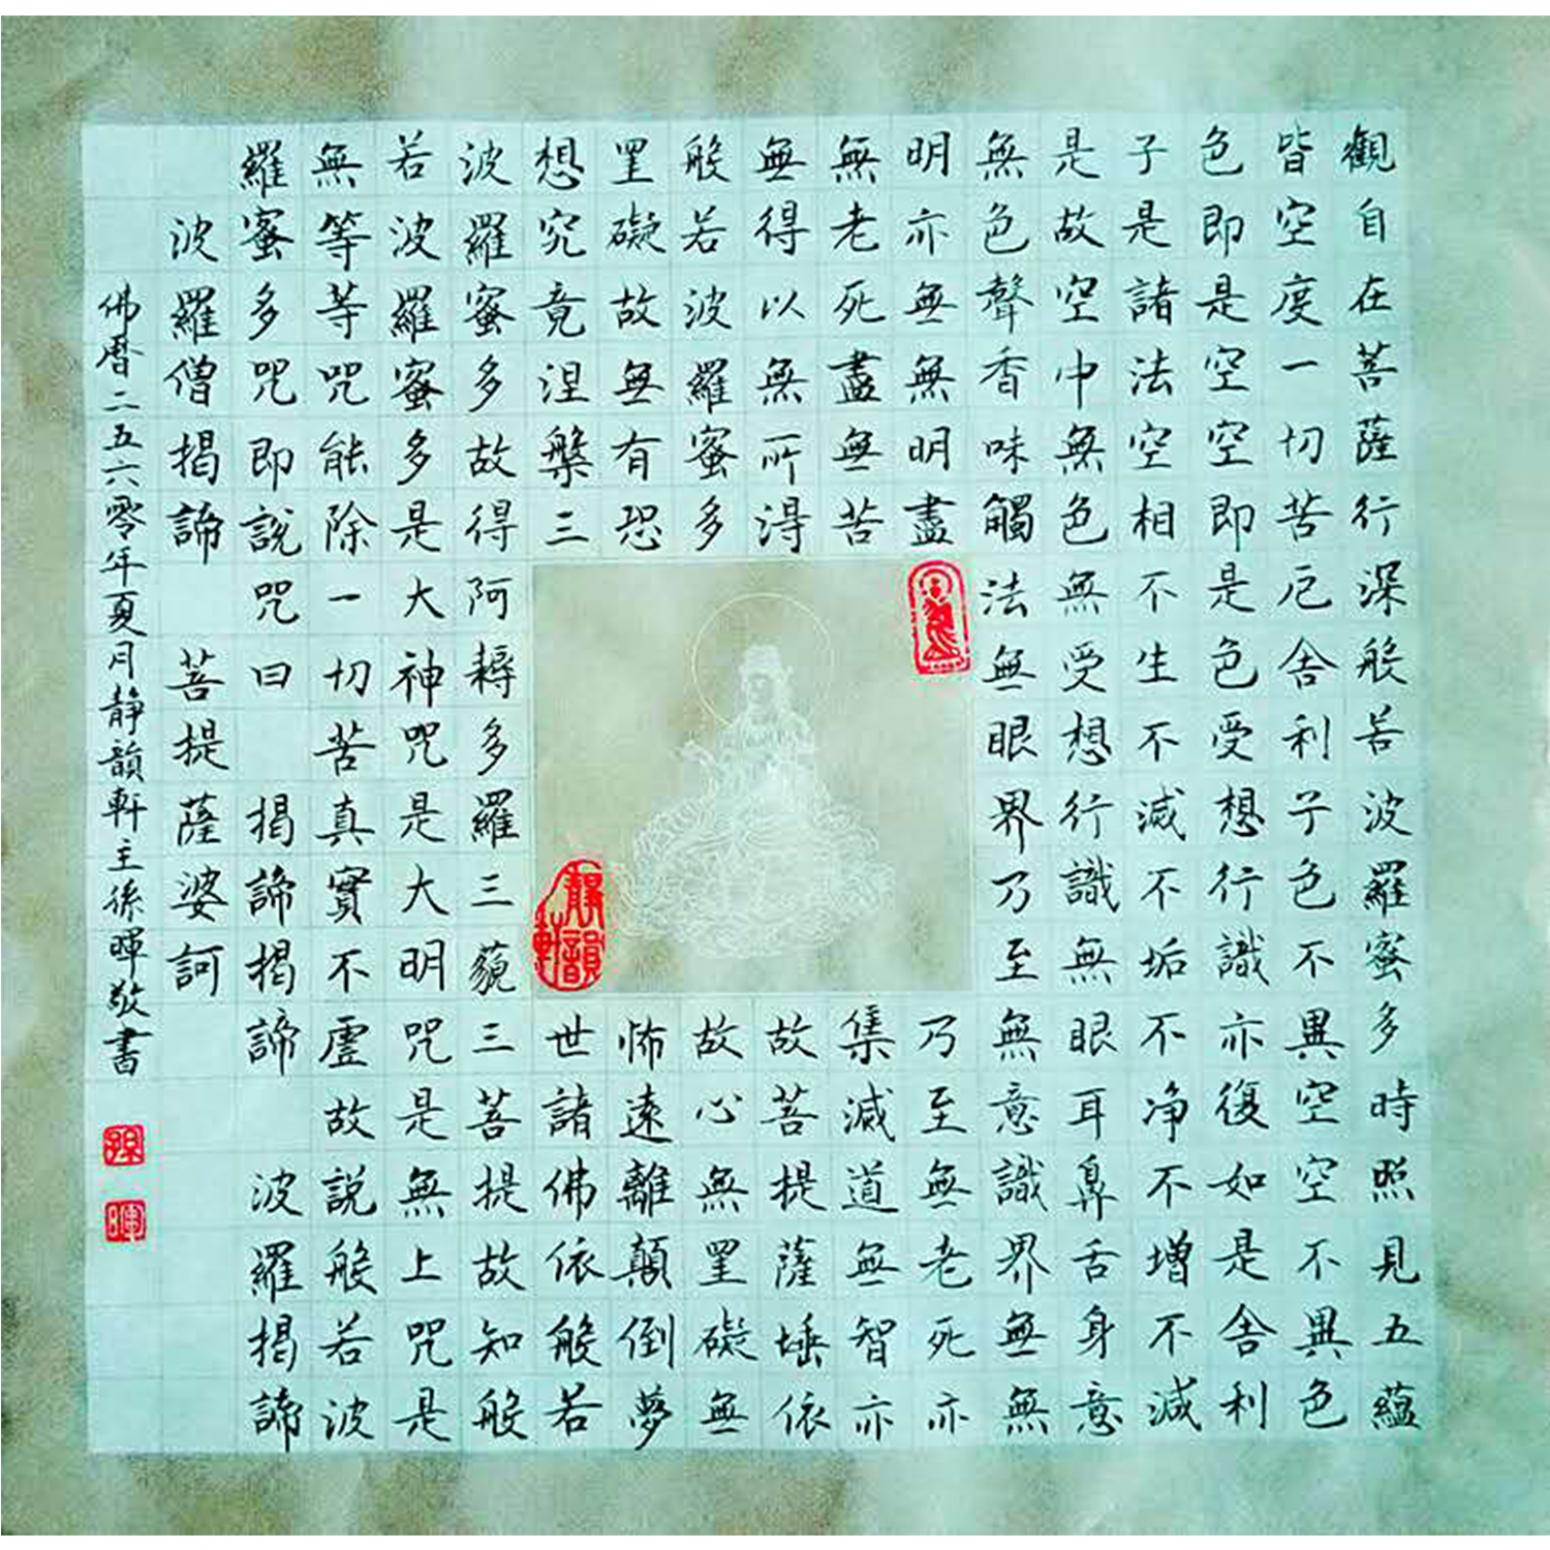 觀自在菩薩行深般若波羅蜜多時照見五蘊
皆空度一切苦厄舍利子色不異空空不異色
色即是空空即是色受想行識亦復如是舍利
子是諸法空相不生不減不垢不净不增不減
是故空中無色無受想行識無眼耳鼻舌身意
無色聲香味觸法無眼界乃至無意識界無無
明亦無無明盡乃至無老死亦
無老死盡無苦集減道無智亦
無得以無所得故菩提薩埵依
般若波羅蜜多故心無罣礙無
罣礙故無有恐怖遠離顛倒夢
想究竟涅槃三世諸佛依般若
波羅蜜多故得阿耨多羅三藐三菩提故知般
若波羅蜜多是大神咒是大明咒是無上咒是
無等等咒能除一切苦真實不虛故說般若波
羅蜜多咒即說咒曰 揭諦揭諦 波羅揭諦
波羅僧揭諦 菩提薩婆訶
佛曆二五六零年夏月靜韻軒主孫暉敬書
靜韻軒
孫
暉